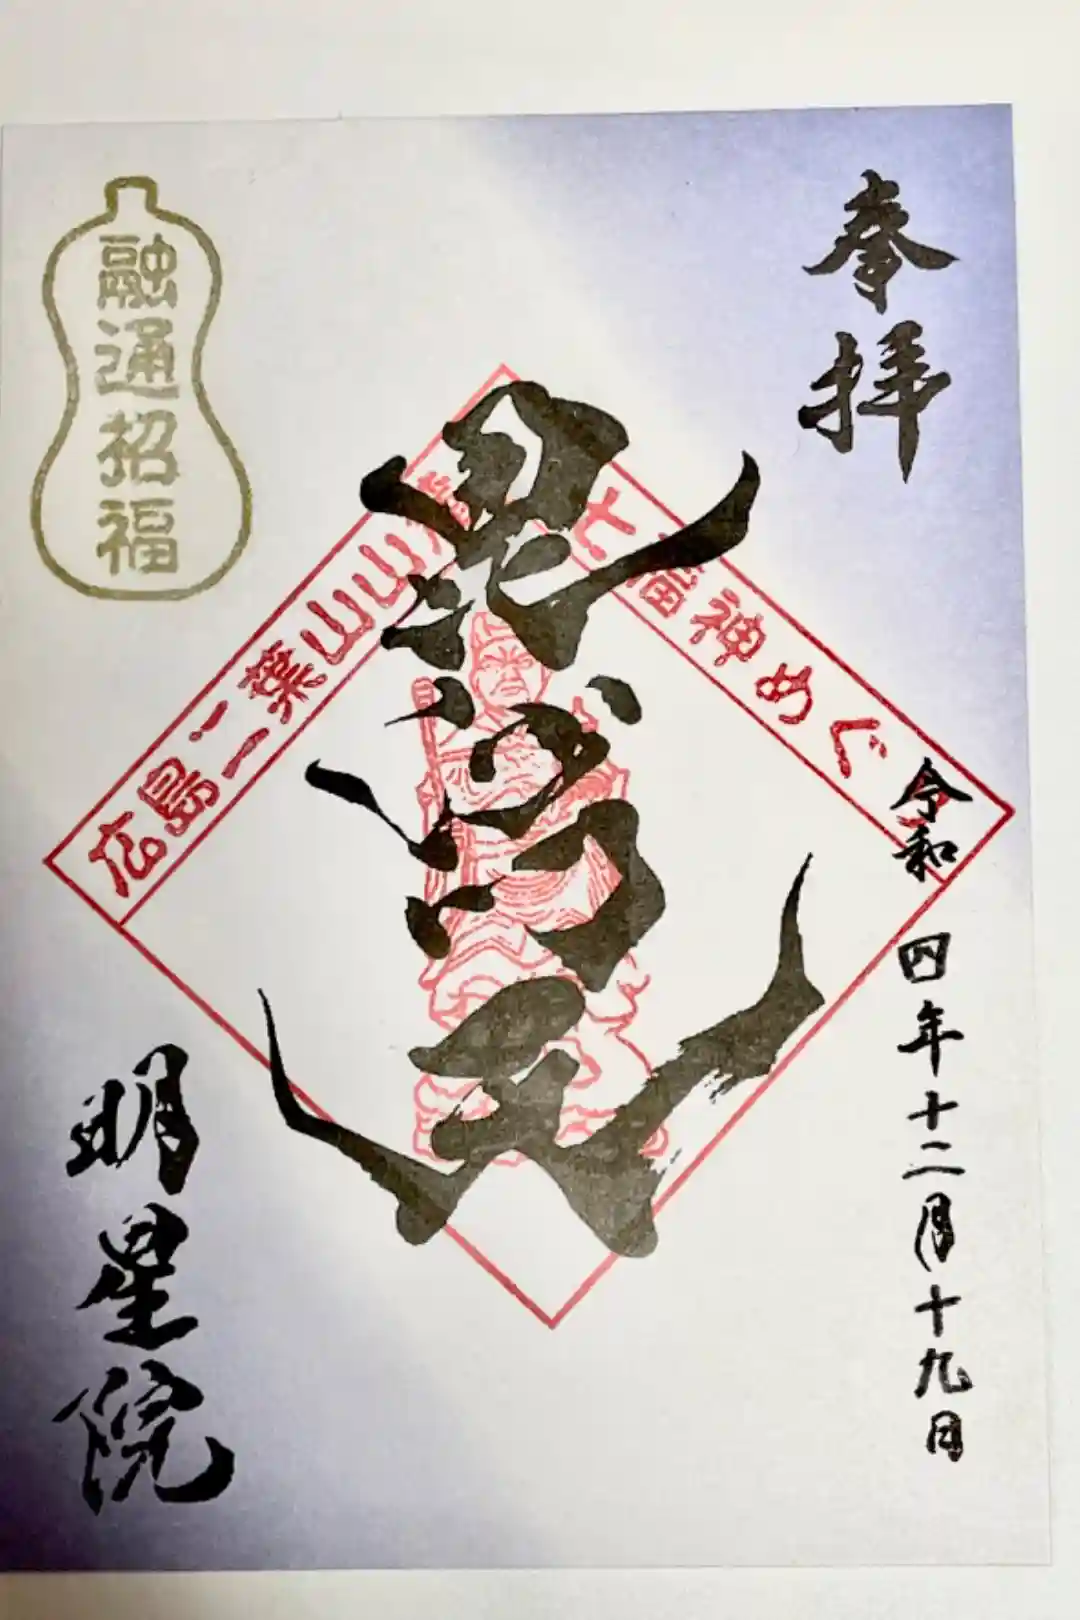 奉拝
令和四年十二月十九日
七福神めぐ
毘沙門天
広島二葉山山
融通招福
明星院